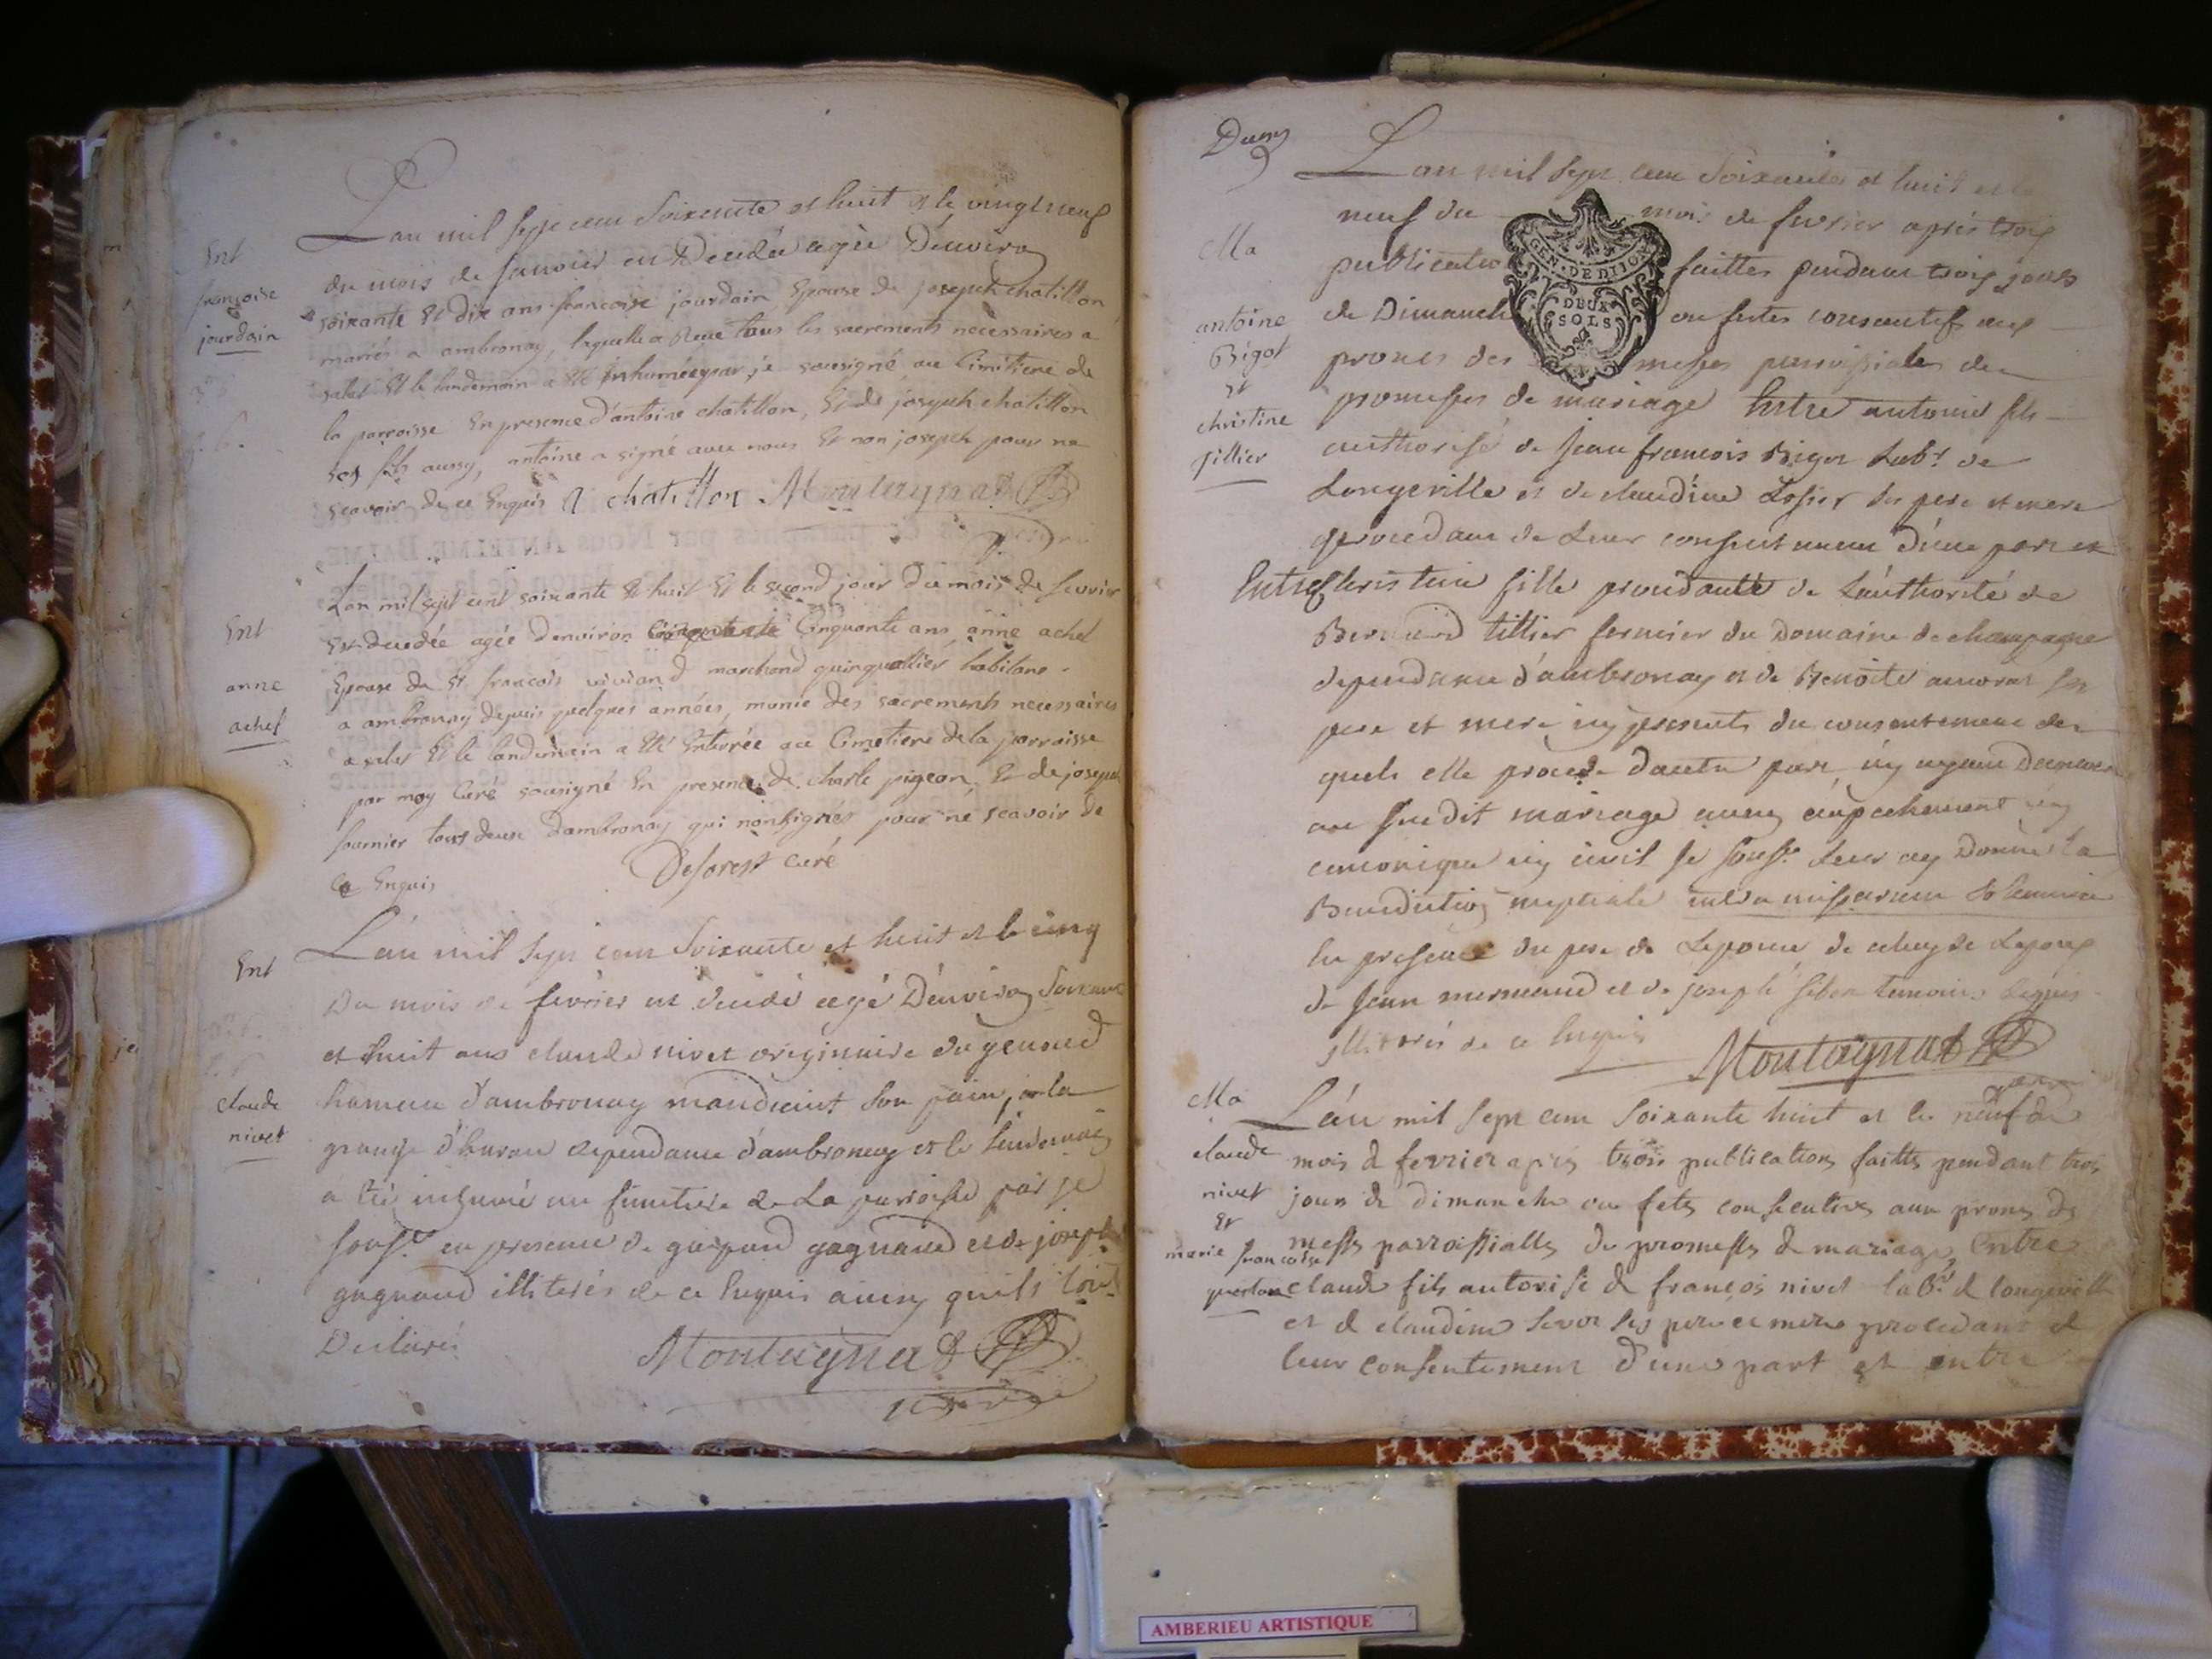 Ent
françoise
jourdain
L'an mil sept cent soixente et huit et le vingt neuf
du mois de janvier est Decedée agée D'environ
soixante Et dix ans françoise jourdain Epouse de joseph chatillon
mariés a ambronay, laquelle a Reçue tous les sacrements necessaires a
salut Et le landemain a Eté inhumée par je sousigné au Cimitiere de
la parroisse En presence d'antoine chatillon, Et de joseph chatillon
ses fils aussy, antoine a signé avec nous Et non joseph pour ne
scavoir de ce Enquis A chatillon Montagnat
Ent
anne
achel
L'an mil sept cent soixante Et huit Et le second jour du mois de fevrier
Est decedée agée d'environ Cinquante ans anne achel
Epouse de Sr françois viviand marchand quinquallier habitant
a ambronay depuis quelques années, munie des sacrements necessaires
a salut Et le landemain a Eté Enterrée au Cimetiere de la parroisse
par moy Curé sousigné En presence de charle pigeon Et de joseph
fournier tous deux d'ambronay qui n'ont signés pour ne scavoir de
ce Enquis
Deforest curé
Ent
claude
nivet
L'an mil sept cent soixante et huit et le cinq
Du mois de fevrier est decedé agé D'environ soixante
et huit ans claude nivet originaire du genoud
hameau d'ambronay mandiant son pain, a la
grange d'hauran dependance d'ambronay et le lendemain
a été inhumé au simitiere de La parroisse par je
souse en presence de gaspard gagnard et de joseph
gagnard illiterés de ce Enquis ainsy qu'ils l'ont
Declaré
Montagnat
Dum
Ma
antoine
Bigot
Et
christine
tillier
L'an mil sept cent soixante et huit et le
neuf du mois de fevrier après trois
publicatio faittes pendant trois jours
de Dimanch ou festes consecutifs aux
prones des messes parroissiales de
promesses de mariage Entre antoine fils
authorisé de Jean françois Bigot Labr de
Longeville et de claudine Lossier ses pere et mere
procedant de Leur consentement d'une part et
Entre Christine fille procedante de L'authorité de
Bernard tillier fermier du Domaine de champagne
dependance d'ambronay et de Benoite ses
pere et mere icy presents du consentement des
quels elle procede d'autre part, n'y ayant Decouvert
au susdit mariage aucun empechement n'y
canonique n'y civil je souse Leur ay Donné la
Benediction nuptiale intra missarum solemnia
En presence du pere de Lepoux, de celuy de Lepouse
de Jean mermand et de joseph temoins requis
illiterés de ce Enquis
Montagnat
Ma
claude
nivet
Et
marie françoise
L'an mil sept cent soixante huit et le neuf du
mois de fevrier après trois publications faittes pendant trois
jours de dimanche ou fets consecutives aux prones des
messes parroissialles de promesses de mariage Entre
claude fils autorisé de françois nivet labr de longeville
et de claudine ses pere et mere procedant de
leur consentement d'une part et entre
GEN. DE DIJON
DEUX
SOLS
AMBERIEU ARTISTIQUE